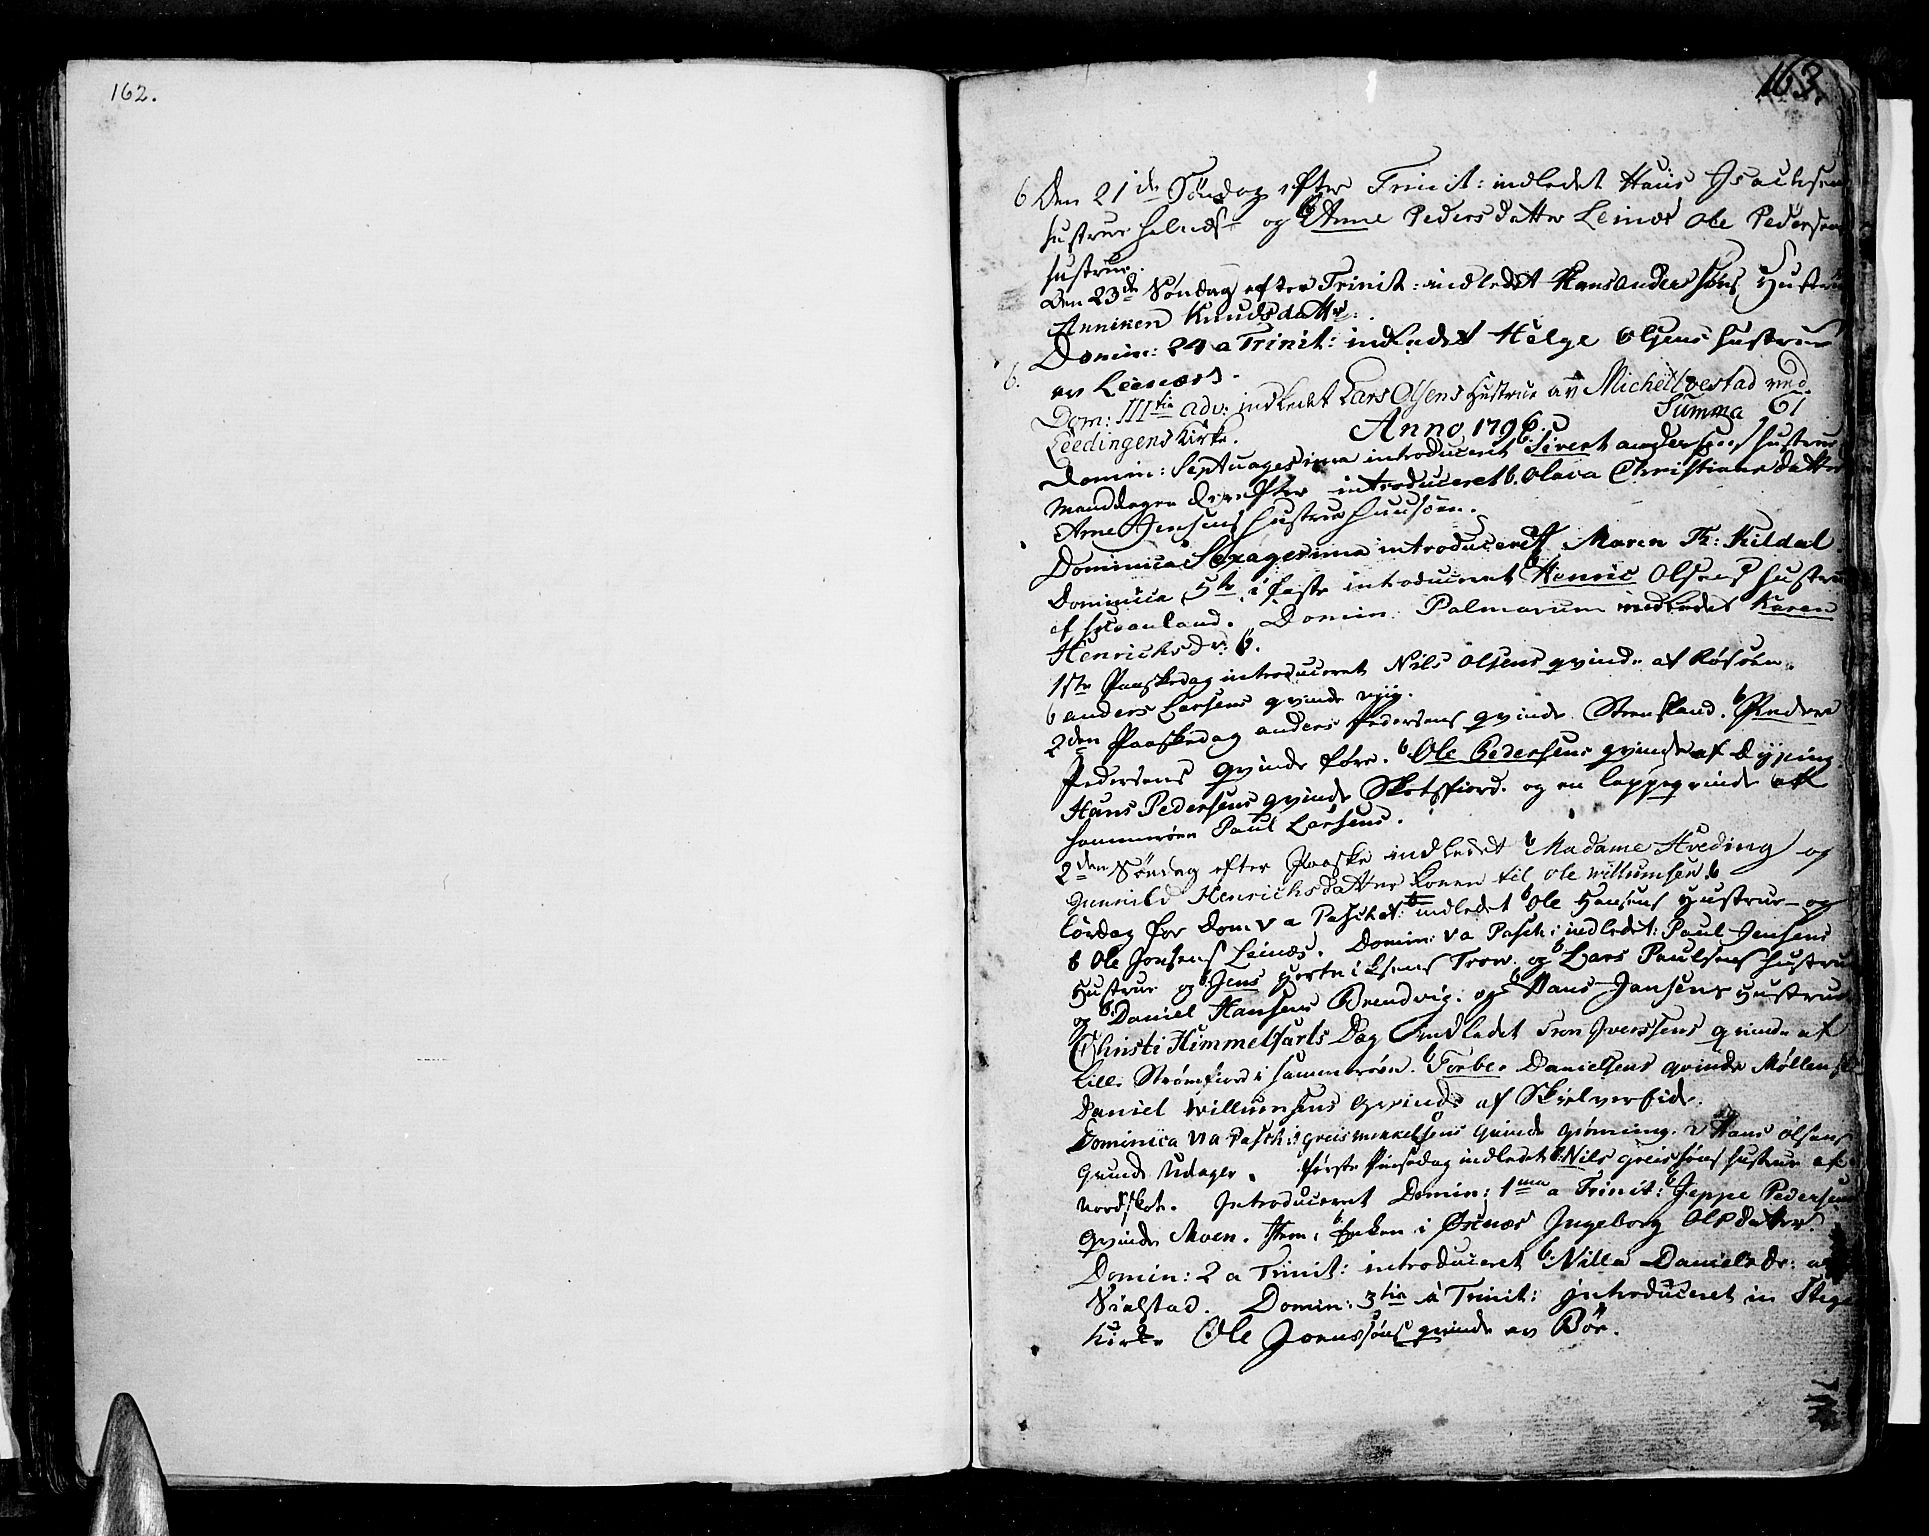 162.
163.
6 Den 21de Söndag efter Trinit: indledet Hans Isachsen
hustrue og b Anne Pedersdatter Leinæs Ole Pedersen
hustrue.
Den 23de Söndag efter Trinit: indledet Hans Anderssöns Hustrue
Anniken Knudsdattr.
Domin: 24 a Trinit: indledet Helge Olsens hustrue
6. av Leinæss.
Dom: IIItia adv: indledet Lars Olsens Hustrue av Michelboestad ved
Leedingens Kirke. Summa 61
Anno 1796.
Domin: Septuagesima introduceret Sivert andersens hustrue
Manddagen derefter introduceret b. Olava Christians datter
Arne Jensens hustrue
Dominica Sexagesima introduceret Maren Th: Kildal.
Dominica 5te i faste introduceret Henric Olsens hustrue
af Domin. Palmarum indledet Karen
Henrichsdr: b.
1ste Paaskedag introduceret Nils Olsens qvinde af Rösöen.
b anders Larsens qvinde
2den Paaskedag anders Pedersens qvinde. b Peder
Pedersens qvinde före. b Ole Pedersens qvinde af Dypping.
Hans Pedersens qvinde Skotsfiord. og en lappeqvinde af
hammeröen Paul Larsens.
2den Söndag efter Paaske indledet b Madame Hveding og
Gunnild Henrichsdatter konen til Ole Willumsen. b
Lördag for Dom V a Paschat: indledet b Ole Hansens Hustrue og
b Ole Jonsens Leinæs. Domin: V a Pasch: indledet: Paul Jensens
Hustrue og b Jens Hendricksens Trow. og b Lars Paulsens hustrue
og b Daniel Hansens Brendvig. og b Hans Jansens Hustrue
Christi Himmelfarts Dag indledet Tron Iverssens qvinde af
Lille Strömfiord i hammeröen. b Torber Danielsens qvinde
Daniel Willumsens qvinde af Skielversfide.
Dominica VI a Pasch: Greis Mickelsens Qvinde og Hans Olsens
Qvinde Udager. förste Pinsedag indledet b Nils Greissöns hustrue af
Nordskot. Introduceret Domin: 1ma a Trinit: b Jeppe Pedersens
qvinde Moen. Item: b Enken i Ösknæs Ingeborg Olsdatter
Domin: 2 a Trinit: introduceret b: Nille Danielsdr: af
Domin: 3tia á Trinit: introduceret in Stegs
Kirke Ole Jonssöns qvinde av Böe.